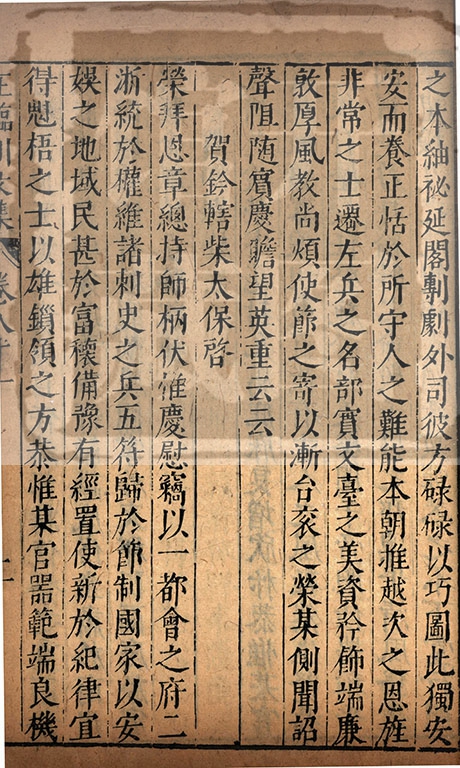 之本紬祕延閣剸劇外司彼方碌碌以巧圖此獨安
安而養正恬於所守人之難能本朝推越次之恩旌
非常之士遷左兵之名部實文臺之美資矜飾端廉
敦厚風教尚煩使節之寄以漸台衮之榮某側聞詔
聲阻随賓慶瞻望英重云云
賀鈐轄柴太保啓
榮拜恩章總持師柄伏惟慶慰竊以一都會之府二
浙統於權維諸刺史之兵五符歸於節制國家以安
娛之地域民甚於富穰備豫有經置使新於紀律宜
得魁梧之士以雄鎖領之方恭惟某官器範端良機
王臨川文集 卷八十一 十二